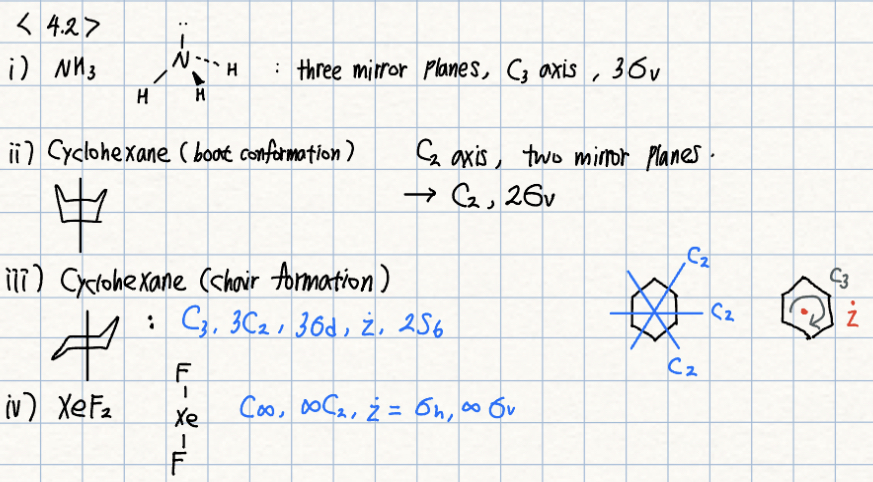 < 4.2 >
i) NH3 N H H H : three mirror planes, C3 axis, 3σv
ii) Cyclohexane (boat conformation) C2 axis, two mirror planes.
→ C2, 2σv
iii) Cyclohexane (chair formation)
: C3, 3C2, 3σd, i, 2S6
C2
C2
C2
C3
i
iv) XeF2 F Xe F C∞, ∞C2, i = σh, ∞σv